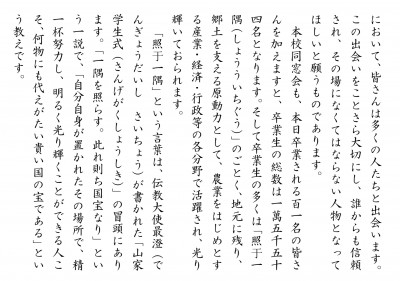 において、皆さんは多くの人たちと出会います。
この出会いをことさら大切にし、誰からも信頼
され、その場になくてはならない人物となって
ほしいと願うものであります。
本校同窓会も、本日卒業される百一名の皆さ
んを加えますと、卒業生の総数は一萬五千五十
四名となります。そして卒業生の多くは「照于一
隅（しょういちぐう）」のごとく、地元に残り、
郷土を支える原動力として、農業をはじめとす
る産業・経済・行政等の各分野で活躍され、光り
輝いておられます。
「照于一隅」という言葉は、伝教大使最澄（で
んぎょうだいし　さいちょう）が書かれた「山家
学生式（さんげがくしょうしき）」の冒頭にあり
ます。「一隅を照らす。此れ則ち国宝なり」とい
う一説で、「自分自身が置かれたその場所で、精
一杯努力し、明るく光り輝くことができる人こ
そ、何物にも代えがたい貴い国の宝である」とい
う教えです。